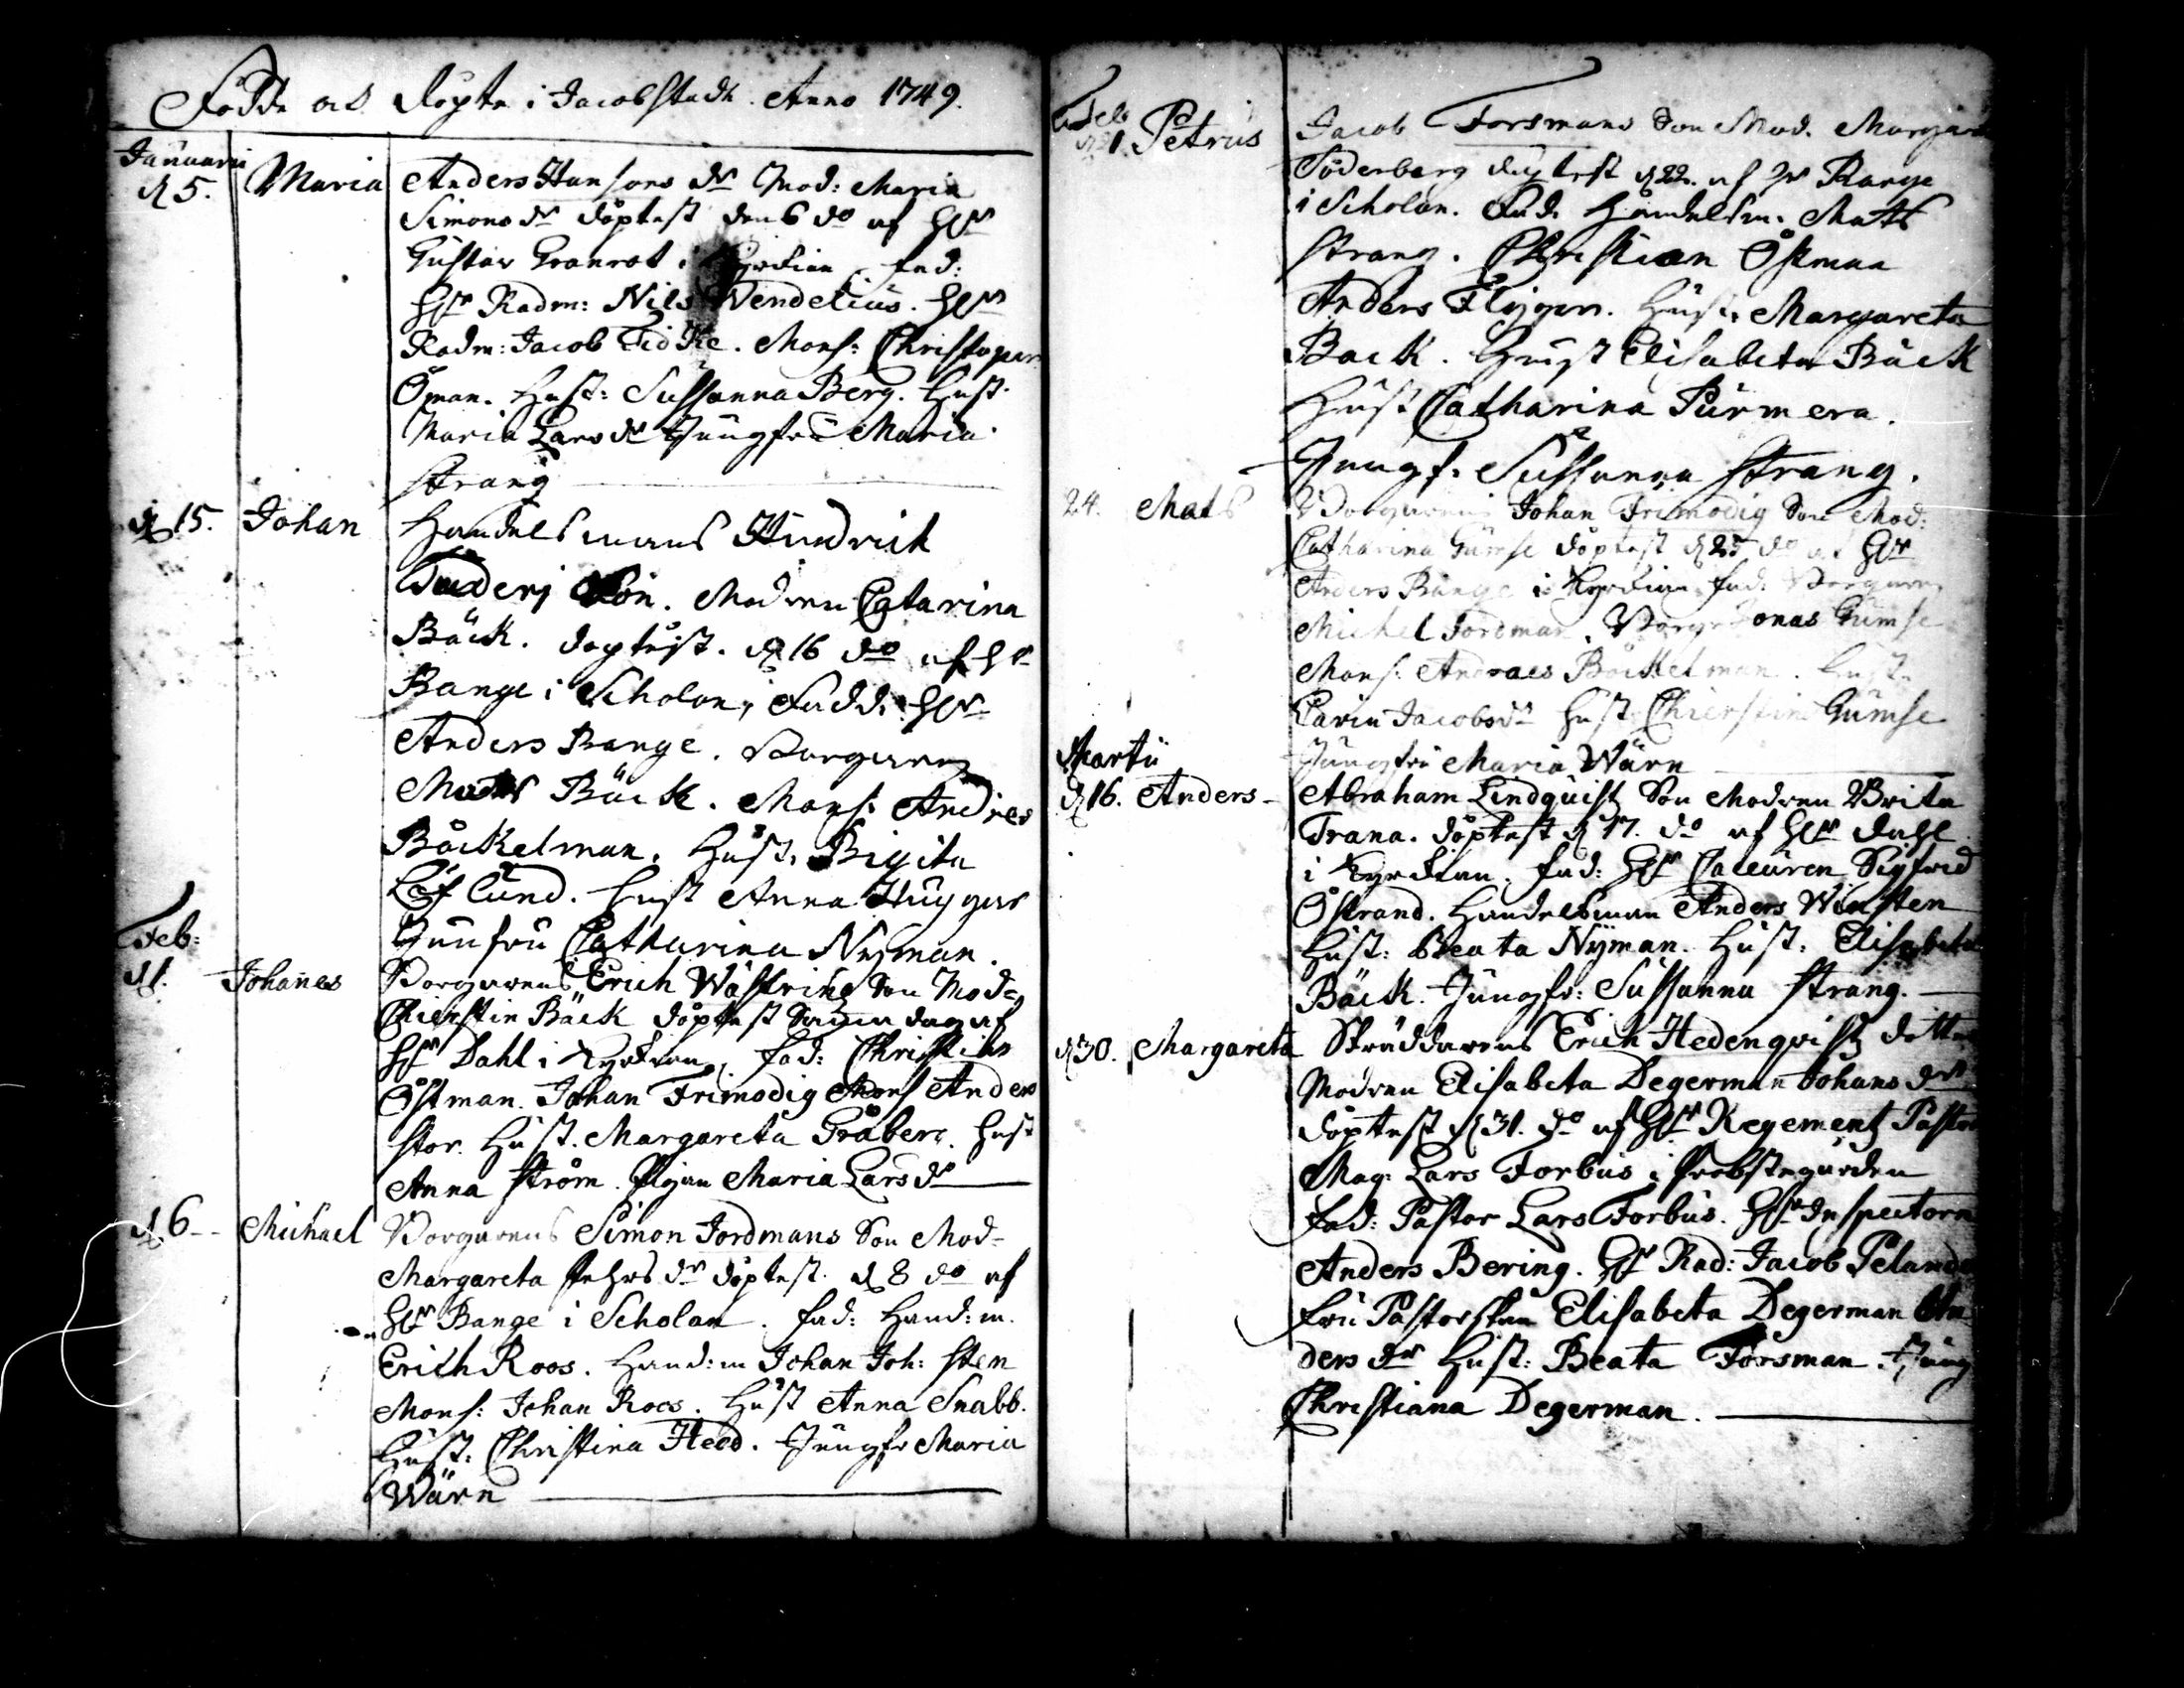 Födde och döpte i Jacobstadh. Anno 1749.
Januarii
d 5. Maria Anders Hansons dr Mod: Maria
Simonsdr döptest den 6 do af Hr
Gustav Granrot i Kyrkian, fad:
Hr Radm: Nils Wendelius. Hr
Radm: Jacob Tidke. Mons: Christoper
Öman. Hust: Sussanna Berg. Hust:
Maria Larsdr Jungfru Maria
Strang
d 15. Johan Handelsmans Hindrich
son. Modren Catarina
Bäck. döptest. d 16 do af Hr
Bange i Scholan, Fadd: Hr
Anders Bange. Borgaren
Mats Bäck. Mons: Andreas
Böckelman. Hust: Brigita
Löflund. Hust Anna Huggar
Junfru Catharina Nyman.
Feb:
d 1. Johannes Borgarens Erich Wästring Son Mod=
Chierstin Bäck döptest samma dag af
Hr Dahl i Kyrkian, fad: Christian
Östman. Johan Frimodig Mons Anders
stor. Hust. Margareta Gråberg. Hust
Anna Ström. Pigan Maria Larsdr
d 6-- Michael Borgarens Simon Jordmans Son Mod=
Margareta dr döptest. d 8 do af
Hr Bange i Scholan. fad: Hand: m.
Erich Roos. Hand: m Johan Joh: Sten
Mons: Johan Roos. Hust Anna Snabb.
Hust: Christina Heed. Jungfr Maria
Wärn
Feb
d 21. Petrus Jacob Forsmans Son Mod. Margar
Söderberg döptest d 22. af Hr Bange
i Scholan. Fad: Handelsm: Mats
Strang. Christian Östman
Anders Flygar. Hust: Margareta
Back. Hust Elisabeta Bäck
Hust Catharina Purmera.
Jungf: Sussanna Strang.
24. Mats Borgarens Johan Frimodig Son Mod:
Catharina Gumse döptest d 25 do af Hr
Anders Bange i Kyrkian. fad: Borgaren
Michel Jordman. Borgr Jonas Gumse
Mons: Andreas Böckelman. Hust:
Carin Jacobsdr Hust Chierstin Gumse
Jungfru Maria Wärn
Martii
d 16. Anders- Abraham Lindquist Son Modren Brita
Trana. döptest d 17. do af Hr Dahl
i Kyrkian. fad: Hr Sigfrid
Östrand. Handelsman Anders Winsten
Hust: Beata Nyman. Hust: Elisabeta
Bäck. Jungfr: Sussanna Strang.
d 30. Margareta Skräddarens Erich Hedenqvist dotter
Modren Elisabeta Degerman Johans dr
döptest d 31. do af Hr Regementz Pastor
Mag: Lars Forbus i Probstegården
fad: Pastor Lars Forbus. Hr Inspectoren
Anders Bering. Hr Rad: Jacob Peland
Fru Pastorskan Elisabeta Degerman An
ders dr Hust: Beata Forsman. Jung
Christiana Degerman.